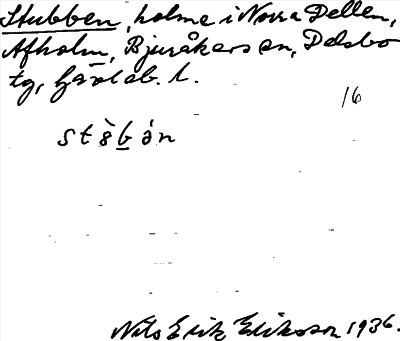 Stubben, holme i Norra Dellen,
Afholm, Bjuråkers sn, Delsbo
tg, Gävleb. l.
16
Nils Erik Eriksson 1936.